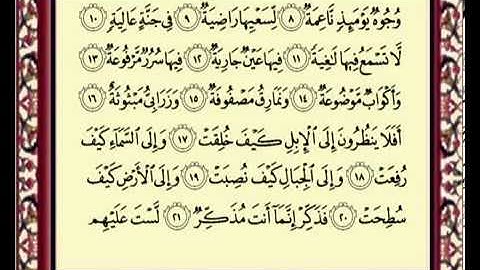 وُجُوهٌ يَوْمَئِذٍ نَّاعِمَةٌ ٨ لِّسَعْيِهَا رَاضِيَةٌ ٩ فِي جَنَّةٍ عَالِيَةٍ ١٠
لَّا تَسْمَعُ فِيهَا لَٰغِيَةً ١١ فِيهَا عَيْنٌ جَارِيَةٌ ١٢ فِيهَا سُرُرٌ مَّرْفُوعَةٌ ١٣
وَأَكْوَابٌ مَّوْضُوعَةٌ ١٤ وَنَمَارِقُ مَصْفُوفَةٌ ١٥ وَزَرَابِيُّ مَبْثُوثَةٌ ١٦
أَفَلَا يَنظُرُونَ إِلَى الْإِبِلِ كَيْفَ خُلِقَتْ ١٧ وَإِلَى السَّمَاءِ كَيْفَ
رُفِعَتْ ١٨ وَإِلَى الْجِبَالِ كَيْفَ نُصِبَتْ ١٩ وَإِلَى الْأَرْضِ كَيْفَ
سُطِحَتْ ٢٠ فَذَكِّرْ إِنَّمَا أَنتَ مُذَكِّرٌ ٢١ لَّسْتَ عَلَيْهِم